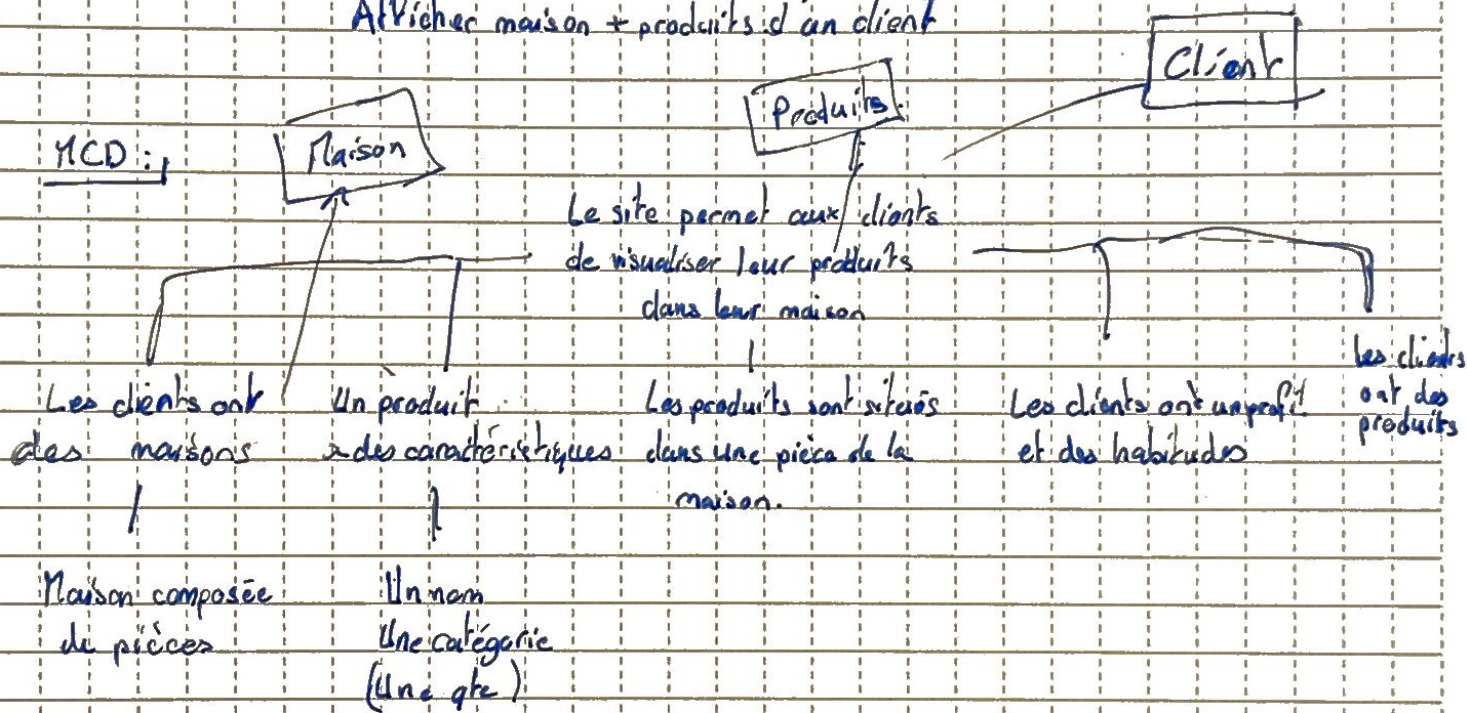 Afficher maison + produits d'un client
Client
Produits
MCD :
Maison
Le site permet aux clients
de visualiser leur produits
dans leur maison
Les clients ont
des maisons
Un produit
a des caractéristiques
Les produits sont situés
dans une pièce de la
maison.
Les clients ont un profil
et des habitudes
Les clients
ont des
produits
Maison composée
de pièces
Un nom
Une catégorie
(Une qte)